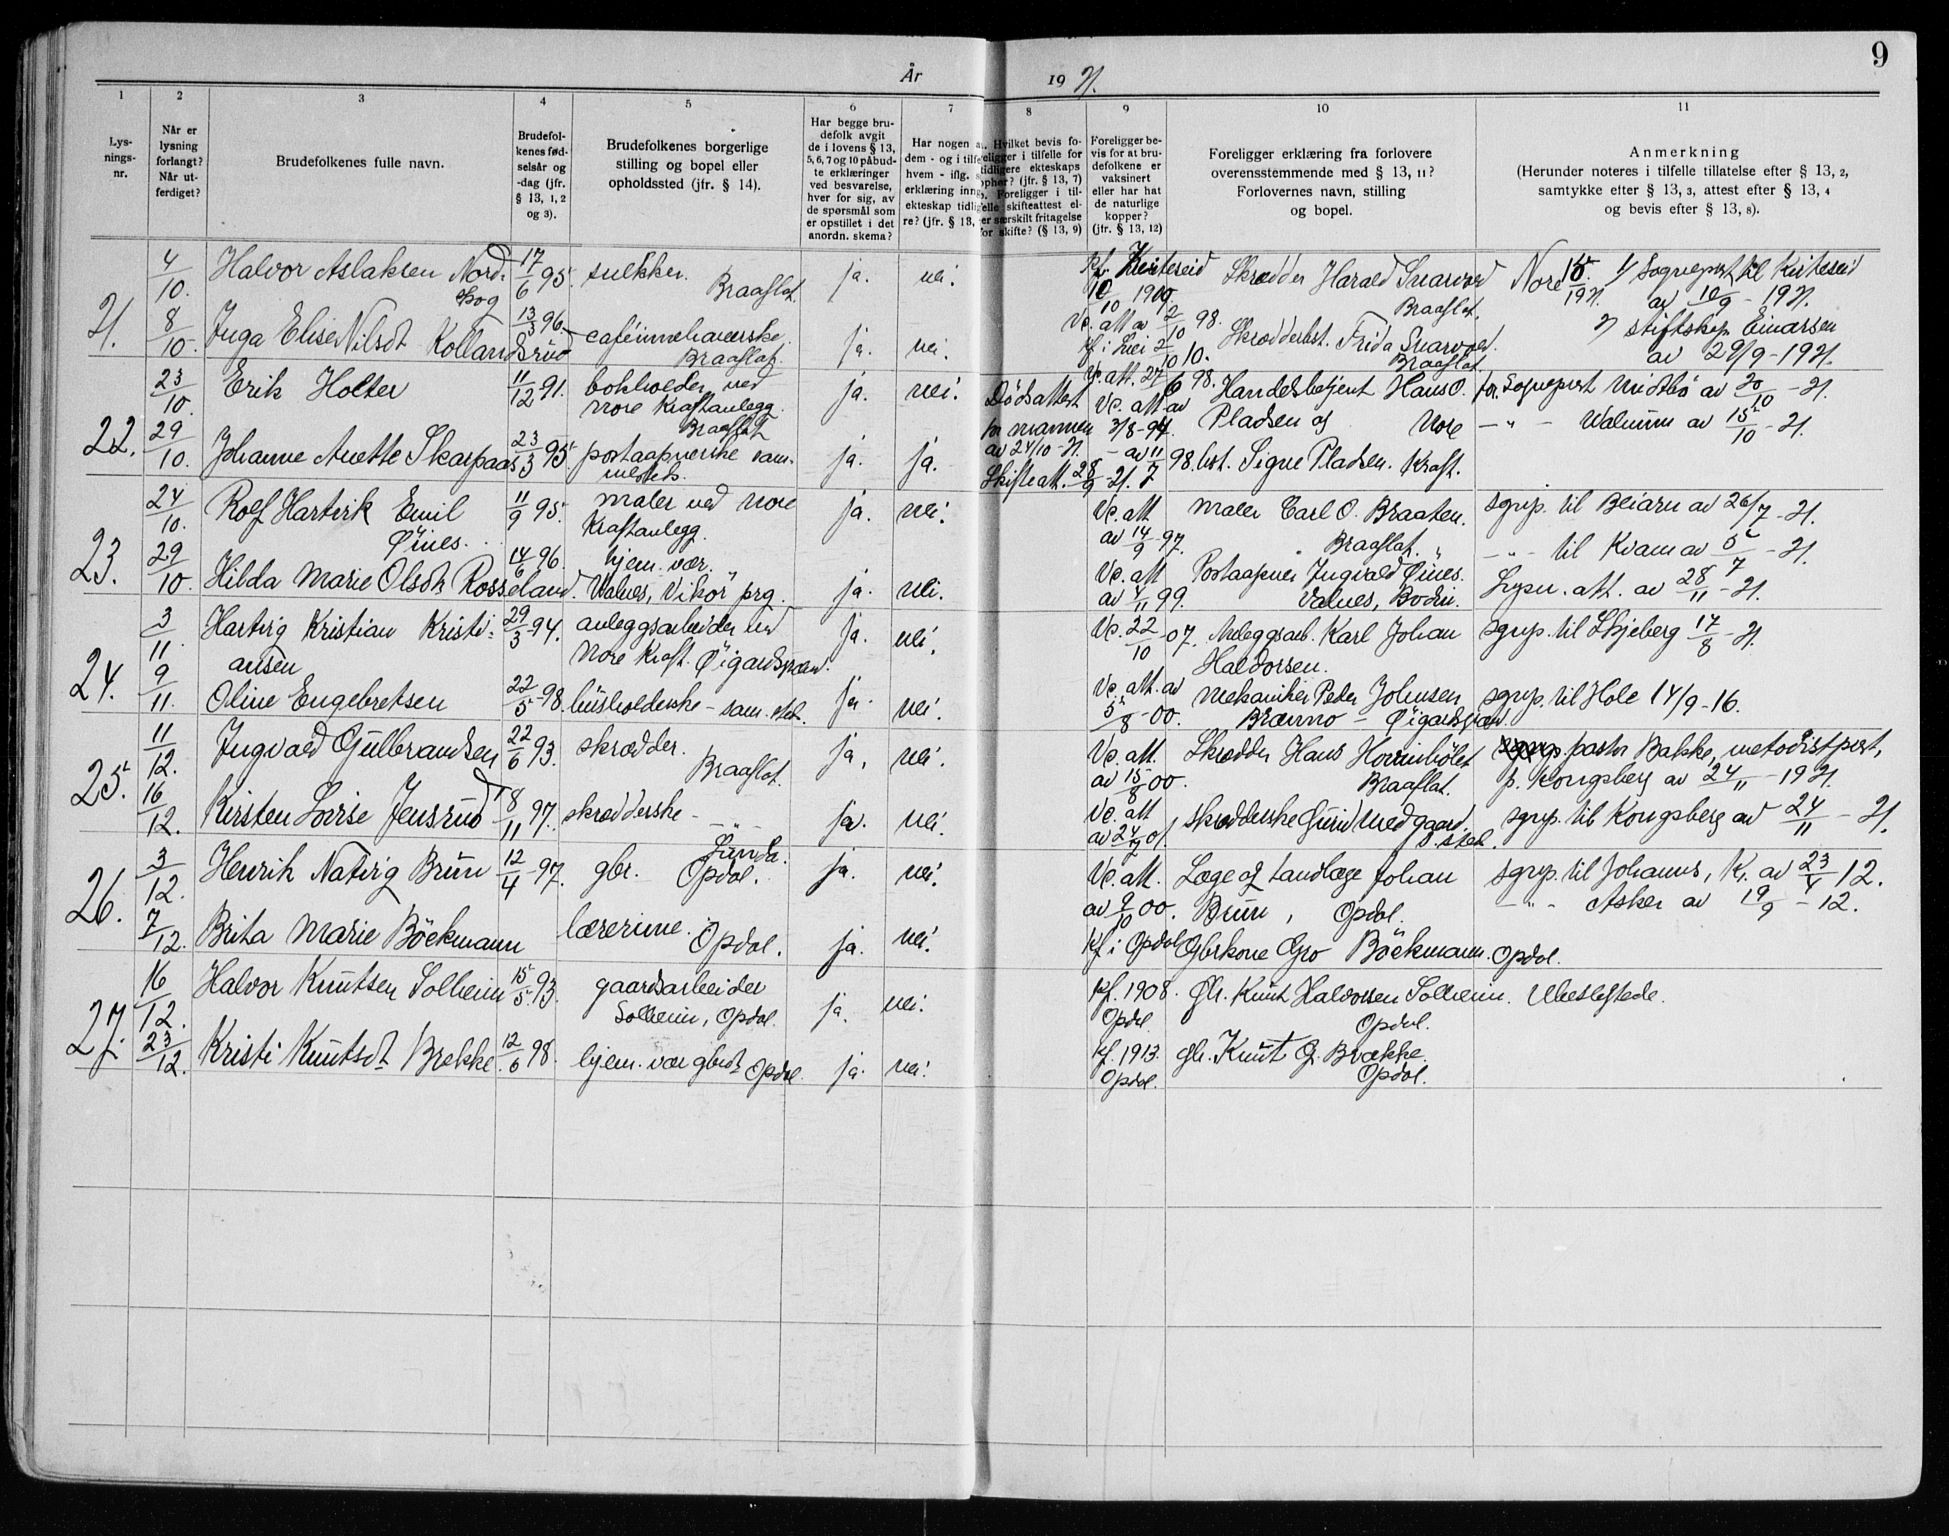 9
År 1921.
1 2 3 4 5 6 7 8 9 10 11
Lysningsnr.
Når er lysning forlangt? Når utferdiget?
Brudefolkenes fulle navn.
Brudefolkenes fødselsår og -dag (jfr. § 13, 1, 2 og 3).
Brudefolkenes borgerlige stilling og bopel eller opholdssted (jfr. § 14).
Har begge brudefolk avgit de i lovens § 13, 5, 6, 7 og 10 påbudte erklæringer ved besvarelse, hver for sig, av de spørsmål som er opstillet i det anordn. skema?
Har nogen a
dem - og i tilfe
hvem - iflg. s
erklæring inng
ekteskap tidlig
re? (jfr. § 13,
a. Hvilket bevis foreligger i tilfelle for tidligere ekteskaps ophør? (jfr. § 13, 7)
b. Foreligger i tilfelle skifteattest eller særskilt fritagelse for skifte? (§ 13, 9)
Foreligger bevis for at brudefolkene er vaksinert eller har hat de naturlige kopper? (jfr. § 13, 12)
Foreligger erklæring fra forlovere overensstemmende med § 13, 11? Forlovernes navn, stilling og bopel.
Anmerkning
(Herunder noteres i tilfelle tillatelse efter § 13, 2, samtykke efter § 13, 3, attest efter § 13, 4 og bevis efter § 13, 8).
21.
4/10. Halvor Aslaksen Nordskog 17/6 95. snekker. Braaflat. ja. nei. Kf. Kviteseid 10/10 1909 Skrædder Harald Snarvold Braaflat. Nore 15/10 1921. 1/ Sogneprest til Kviteseid av 10/9 - 1921.
8/10. Inga Elise Nilsdt Kollandsrud 13/3 96. caféinnehaverske. Braaflat. ja. nei. Vc. att av 2/10 98. Skrædderbst. Frida Snarvold. Braaflat. 2/ stiftskap Einarsen av 29/9 - 1921.
22.
23/10. Erik Holter 11/12 91. bokholder ved Nore Kraftanlegg. Braaflat ja. nei. Vc. att. 27/6 98. Handelsbetjent Hans O. Pladsen og Nore Sogneprest Midtbö av 20/10 - 21.
29/10. Johanne Anette Skarpaas 23/3 95. postaapnerske sammesteds. ja. ja. Dödsattest for mannen av 24/10 - 21. Skifteatt. 28/9 - 21. Vc. att av 3/8 - 94. - av 11/7 98. bst. Signe Pladsen. Kraft. -"- Walnum av 15/10 - 21.
23.
24/10. Rolf Hartvik Emil Öines. 11/9 95. maler ved Nore Kraftanlegg. ja. nei. Vc. att av 14/9 97. Maler Carl O. Braaten. Braaflat. sgnp. til Beiarn av 26/7 - 21.
29/10. Hilda Marie Olsdtr Rosseland. 14/6 96. hjem. vær. Valnes, Vikör prg. ja. nei. Vc. att av 4/11 99. Postaapner Ingvald Öines. Valnes, Bodin. -"- til Kvam av 5/7 - 21.
Lysn. att. av 28/11 - 21.
24.
3/11. Hartvig Kristian Kristiansen 29/3 - 94. anleggsarbeider ved Nore Kraft. Öigardsgræn. ja. nei. Vc. 22/10 - 07. Anleggsarb. Karl Johan Haldorsen. sgnp. til Skjeberg 17/8 - 21.
9/11. Oline Engebretsen 22/5 - 98. husholderske - sam. sted. ja. nei. Vc. att. av 5/8 - 00. Mekaniker Peder Johnsen Brænno - Öigardsgræn. sgnp. til Hole 14/9 - 16.
25.
11/12. Ingvald Gulbrandsen 22/6 93. skrædder. Braaflat. ja. nei. Vc. att. av 15/8 00. Skrædder Hans Hovinbölet Braaflat. pastor Bakke, metodistprest, p. Kongsberg av 24/11 - 1921.
16/12. Kirsten Lovise Jensrud 18/11 97. skrædderske -"- ja. nei. Vc. att av 24/7 01. skrædderske Guri Medgaard s. sted. sgnp. til Kongsberg av 24/11 - 21.
26.
3/12. Henrik Natvig Brun 12/4 - 97. gbr. Opdal. ja. nei. Vc. att. av 9/10 00. Læge og tandlæge Johan Brun, Opdal. sgnp. til Johannes, K. av 23/4 12.
7/12. Brita Marie Böckmann lærerinne. Opdal. ja. nei. Kf. i Opdal Gbrkone Gro Böckmann. Opdal. -"- Asker av 19/9 - 12.
27.
16/12. Halvor Knutsen Solheim 15/5 93. gaardsarbeider Solheim, Opdal. ja. nei. Kf. 1908. Opdal. Gbr. Knut Halvorsen Solheim. Opdal. Ubeslegtede.
23/12. Kristi Knutsdt Brekke. 12/6 98. hjem. vær gbrdt Opdal. ja. nei. Kf. 1913. Opdal. gbr. Knut G. Brække. Opdal.